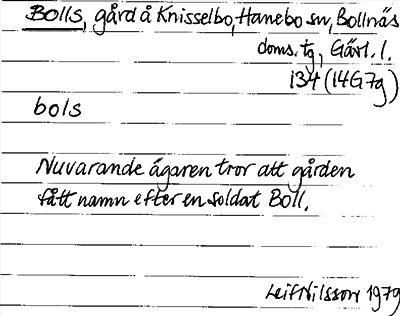 Bolls, gård å Knisselbo, Hanebo sn, Bollnäs
doms. tg, Gävl. l.
134 (14G7g)
bols
Nuvarande ägaren tror att gården
fått namn efter en soldat Boll.
Leif Nilsson 1979